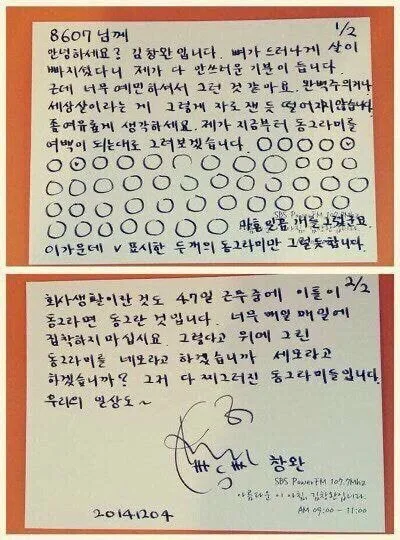 8607님께
1/2
안녕하세요? 김창완입니다. 뼈가 드러나게 살이
빠지셨다니 제가 다 안쓰러운 기분이 듭니다.
근데 너무 예민하셔서 그런 것 같아요. 완벽주의거나
세상살이라는 게 그렇게 자로 잰 듯 떨어지지않습니다.
좀 여유롭게 생각하세요. 제가 지금부터 동그라미를
여백이 되는대로 그려보겠습니다.
SBS PowerFM
마흔일곱 개를 그렸군요.
이 가운데 v 표시한 두개의 동그라미만 그럴듯합니다.
2/2
회사생활이란 것도 47일 근무중에 이틀이
동그라면 동그란 것입니다. 너무 매일매일에
집착하지 마십시요. 그렇다고 위에 그린
동그라미를 네모라고 하겠습니까 세모라고
하겠습니까? 그저 다 찌그러진 동그라미들입니다.
우리의 일상도~
창완
SBS PowerFM 107.7Mhz
아름다운 이 아침, 김창완입니다.
AM 09:00 - 11:00
20141204